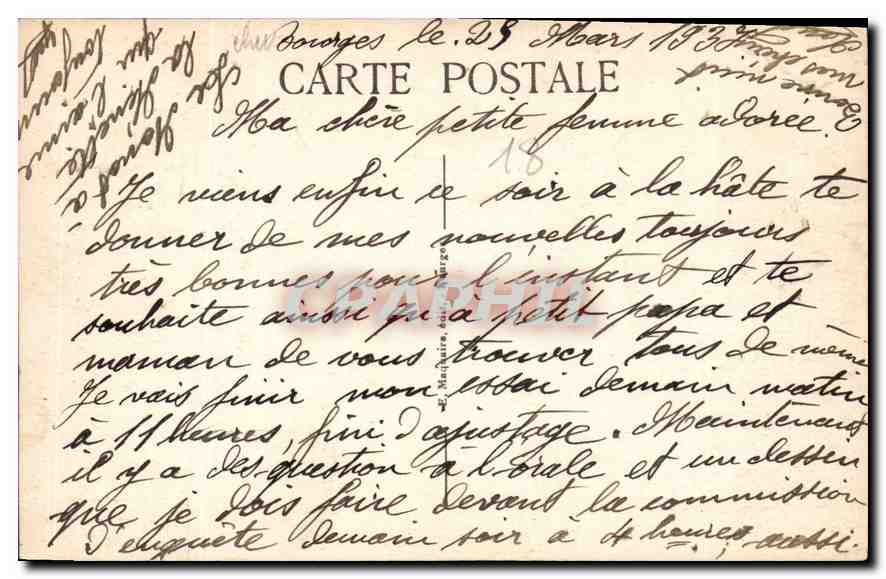 cher
Bourges le 25 Mars 193
CARTE POSTALE
Ma chère petite femme adorée.
18
Je viens enfin ce soir à la hâte te
donner de mes nouvelles toujours
très bonnes pour l'instant et te
souhaite ainsi qu'à petit papa et
maman de vous trouver tous de même
Je vais finir mon essai demain matin
à 11 heures, fini d'ajustage. Maintenant
il y a des question à l'orale et un dessin
que je dois faire devant la commission
d'enquête demain soir à 4 heures, aussi.
E. Maquaire, édit., Bourges
CPAPHIL
Bonne nuit
mon chéri